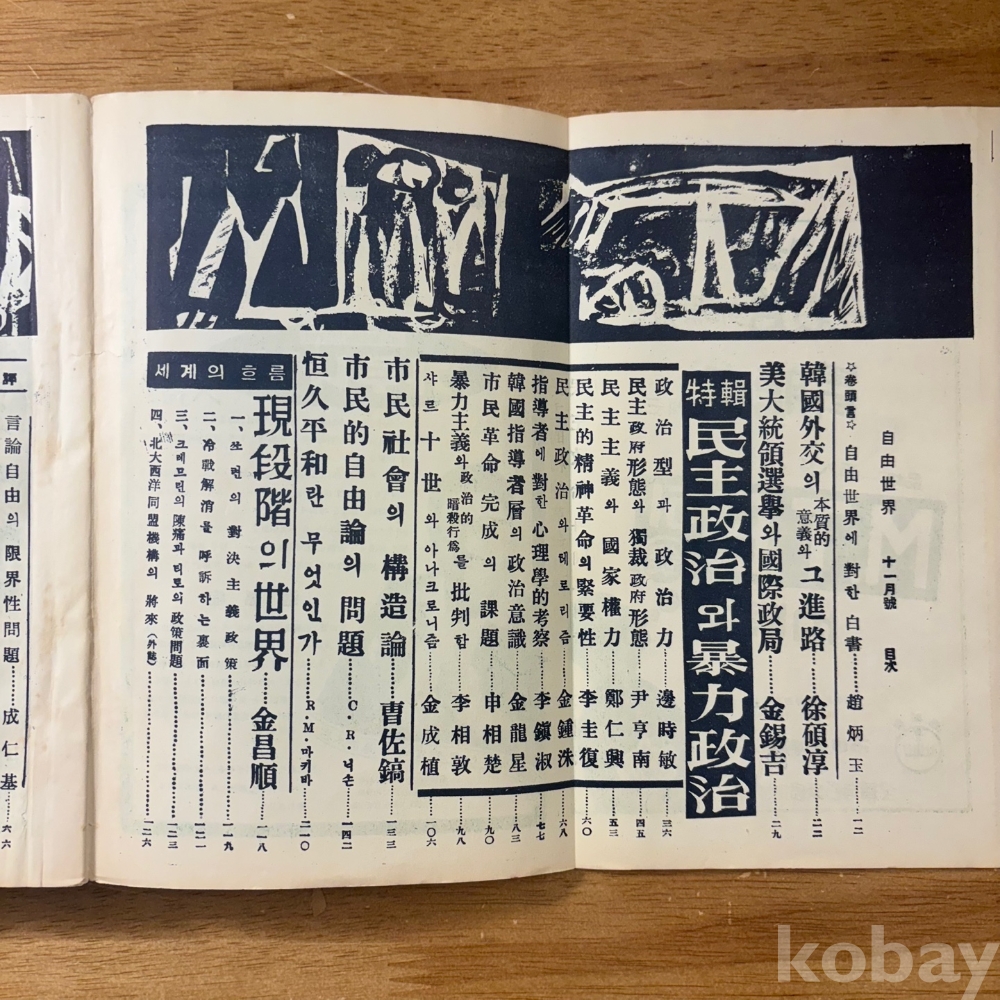 自由世界 十一月號 目次
☆卷頭言☆ 自由世界에 對한 白書 趙炳玉 一二
韓國外交의 本質的意義와 그 進路 徐碩淳 二二
美大統領選擧와 國際政局 金錫吉 二九
特輯 民主政治와 暴力政治
政治型과 政治力 邊時敏 三六
民主政府形態와 獨裁政府形態 尹亨南 四五
民主主義와 國家權力 鄭仁興 五三
民主的精神革命의 緊要性 李圭復 六〇
民主政治와 테로리즘 金鍾洙 六八
指導者에 對한 心理學的考察 李鎭淑 七七
韓國指導者層의 政治意識 金龍星 八三
市民革命完成의 課題 申相楚 九〇
暴力主義와 政治的暗殺行爲를 批判함 李相敦 九八
샤르十世와 아나크로니즘 金成植 一〇六
市民社會의 構造論 曺佐鎬 一三三
市民的自由論의 問題 C・R・닉슨 一四二
恒久平和란 무엇인가 R・M・마키바 二一〇
세계의 흐름
現段階의 世界 金昌順 一一八
一、쏘련의 對決主義政策 一一九
二、冷戰解消를 呼訴하는 裏面 一二一
三、크레므린의 陳痛과 티토의 政策問題 一二三
四、北大西洋同盟機構의 將來 (外誌) 一二六
評
言論自由의 限界性問題 成仁基 六六
kobay